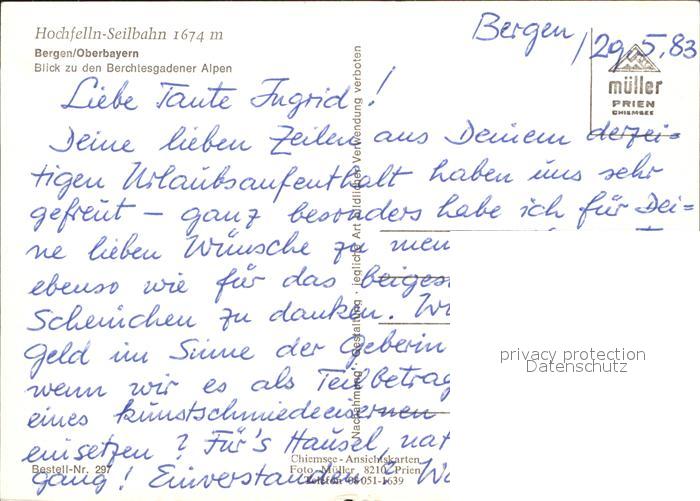 Hochfelln-Seilbahn 1674 m
Bergen/Oberbayern
Blick zu den Berchtesgadener Alpen
Bergen, 29.5.83
müller
PRIEN
CHIEMSEE
Liebe Tante Ingrid!
Deine lieben Zeilen aus Deinem derzei-
tigen Urlaubsaufenthalt haben uns sehr
gefreut – ganz besonders habe ich für Dei-
ne lieben Wünsche zu mei
ebenso wie für das beiges
Scheinchen zu danken. Wi
Geld im Sinne der Geberin
wenn wir es als Teilbetrag
eines kunstschmiedeeisernen
einsetzen? Für's Häusel, nat
gang! Einverstanden? W
Nachahmung · Gestaltung · jegliche Art bildlicher Verwendung verboten
privacy protection
Datenschutz
Bestell-Nr. 297
Chiemsee-Ansichtskarten
Foto Müller, 8210 Prien
Telefon 08051-1639